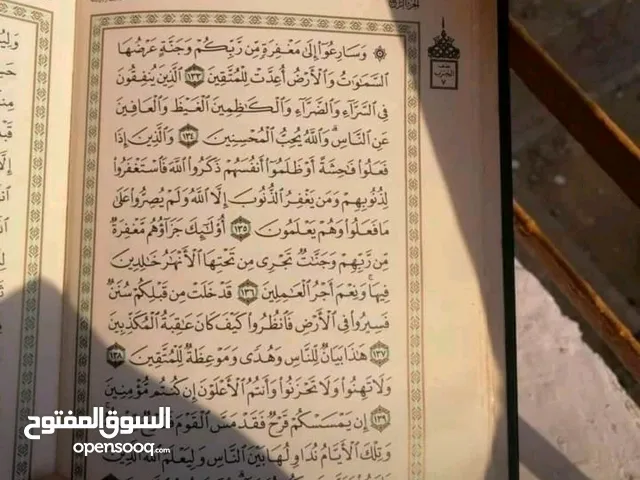 وَسَارِعُوٓا۟ إِلَىٰ مَغْفِرَةٍ مِّن رَّبِّكُمْ وَجَنَّةٍ عَرْضُهَا
ٱلسَّمَٰوَٰتُ وَٱلْأَرْضُ أُعِدَّتْ لِلْمُتَّقِينَ ١٣٣ ٱلَّذِينَ يُنفِقُونَ
فِى ٱلسَّرَّآءِ وَٱلضَّرَّآءِ وَٱلْكَٰظِمِينَ ٱلْغَيْظَ وَٱلْعَافِينَ
عَنِ ٱلنَّاسِ وَٱللَّهُ يُحِبُّ ٱلْمُحْسِنِينَ ١٣٤ وَٱلَّذِينَ إِذَا
فَعَلُوا۟ فَٰحِشَةً أَوْ ظَلَمُوٓا۟ أَنفُسَهُمْ ذَكَرُوا۟ ٱللَّهَ فَٱسْتَغْفَرُوا۟
لِذُنُوبِهِمْ وَمَن يَغْفِرُ ٱلذُّنُوبَ إِلَّا ٱللَّهُ وَلَمْ يُصِرُّوا۟ عَلَىٰ
مَا فَعَلُوا۟ وَهُمْ يَعْلَمُونَ ١٣٥ أُو۟لَٰٓئِكَ جَزَآؤُهُم مَّغْفِرَةٌ
مِّن رَّبِّهِمْ وَجَنَّٰتٌ تَجْرِى مِن تَحْتِهَا ٱلْأَنْهَٰرُ خَٰلِدِينَ
فِيهَا وَنِعْمَ أَجْرُ ٱلْعَٰمِلِينَ ١٣٦ قَدْ خَلَتْ مِن قَبْلِكُمْ سُنَنٌ
فَسِيرُوا۟ فِى ٱلْأَرْضِ فَٱنظُرُوا۟ كَيْفَ كَانَ عَٰقِبَةُ ٱلْمُكَذِّبِينَ
١٣٧ هَٰذَا بَيَانٌ لِّلنَّاسِ وَهُدًى وَمَوْعِظَةٌ لِّلْمُتَّقِينَ ١٣٨
وَلَا تَهِنُوا۟ وَلَا تَحْزَنُوا۟ وَأَنتُمُ ٱلْأَعْلَوْنَ إِن كُنتُم مُّؤْمِنِينَ
١٣٩ إِن يَمْسَسْكُمْ قَرْحٌ فَقَدْ مَسَّ ٱلْقَوْمَ
وَتِلْكَ ٱلْأَيَّامُ نُدَاوِلُهَا بَيْنَ ٱلنَّاسِ وَلِيَعْلَمَ ٱللَّهُ ٱلَّذِينَ
السوق المفتوح
opensooq.com